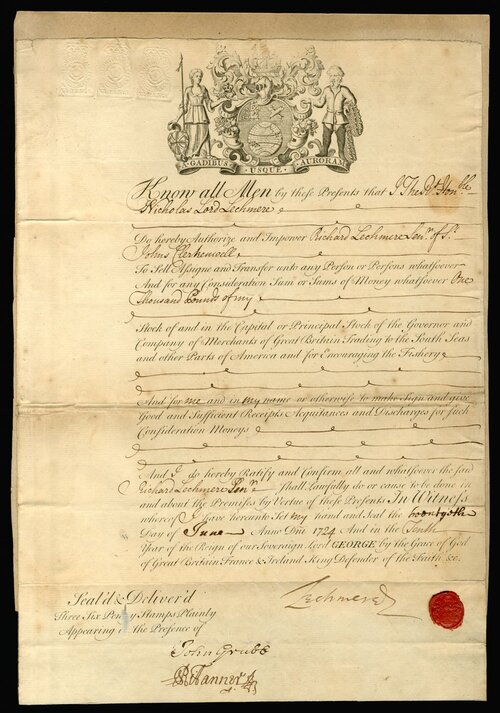 GADIBUS USQUE AURORAM
Know all Men by these Presents that I The Rt. Honble.
Nicholas Lord Lechmere
Do hereby Authorize and Impower Richard Lechmere Senr. of St.
Johns Clerkenwell
To Sell Assigne and Transfer unto any Person or Persons whatsoever
And for any Consideration Sum or Sums of Money whatsoever One
Thousand Pounds of my
Stock of and in the Capital or Principal Stock of the Governor and
Company of Merchants of Great Britain Trading to the South Seas
and other Parts of America and for Encouraging the Fishery
And for me and in my name or otherwise to make Sign and give
Good and Sufficient Receipts Acquitances and Discharges for such
Consideration Moneys
And I do hereby Ratify and Confirm all and whatsoever the said
Richard Lechmere Senr. Shall Lawfully do or cause to be done in
and about the Premisses by Vertue of these Presents In Witness
whereof I have hereunto Set my hand and Seal the twentyoth
Day of June Anno Dni 1724 And in the Tenth
Year of the Reign of our Sovereign Lord GEORGE by the Grace of God
of Great Britain France & Ireland King Defender of the Faith &c.
Seal'd & Deliver'd
Three Six Penny Stamps Plainly
Appearing in the Presence of
Lechmere
John Grubb
R Tanner